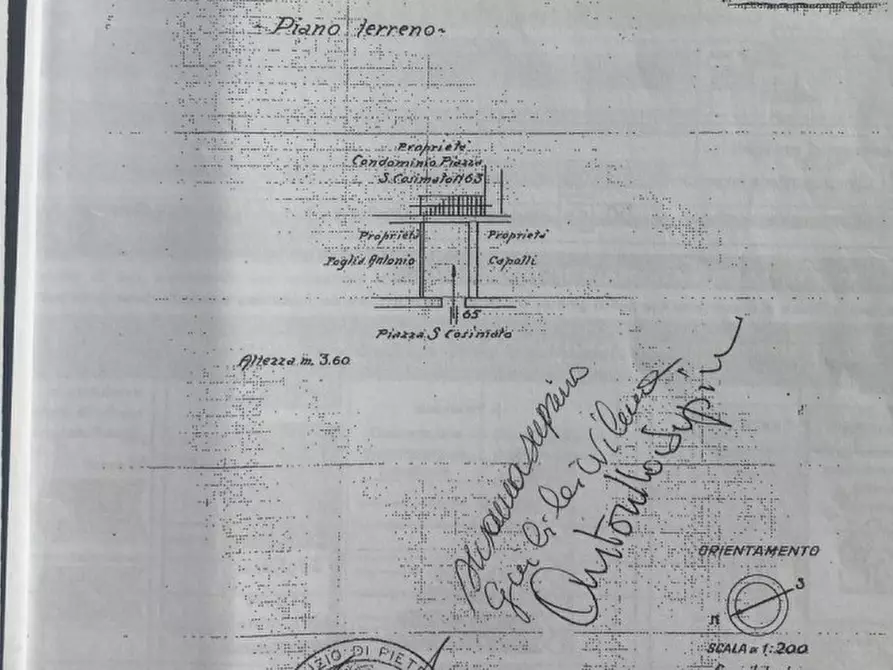 - Piano terreno -
Proprietà
Condominio Piazza
S. Cosimato N 63
Proprietà
Foglia Antonio
Proprietà
Capelli
65
Piazza S Cosimato
Altezza m. 3.60
Antonello
ORIENTAMENTO
N S
SCALA di 1:200
ZIO DI PIET